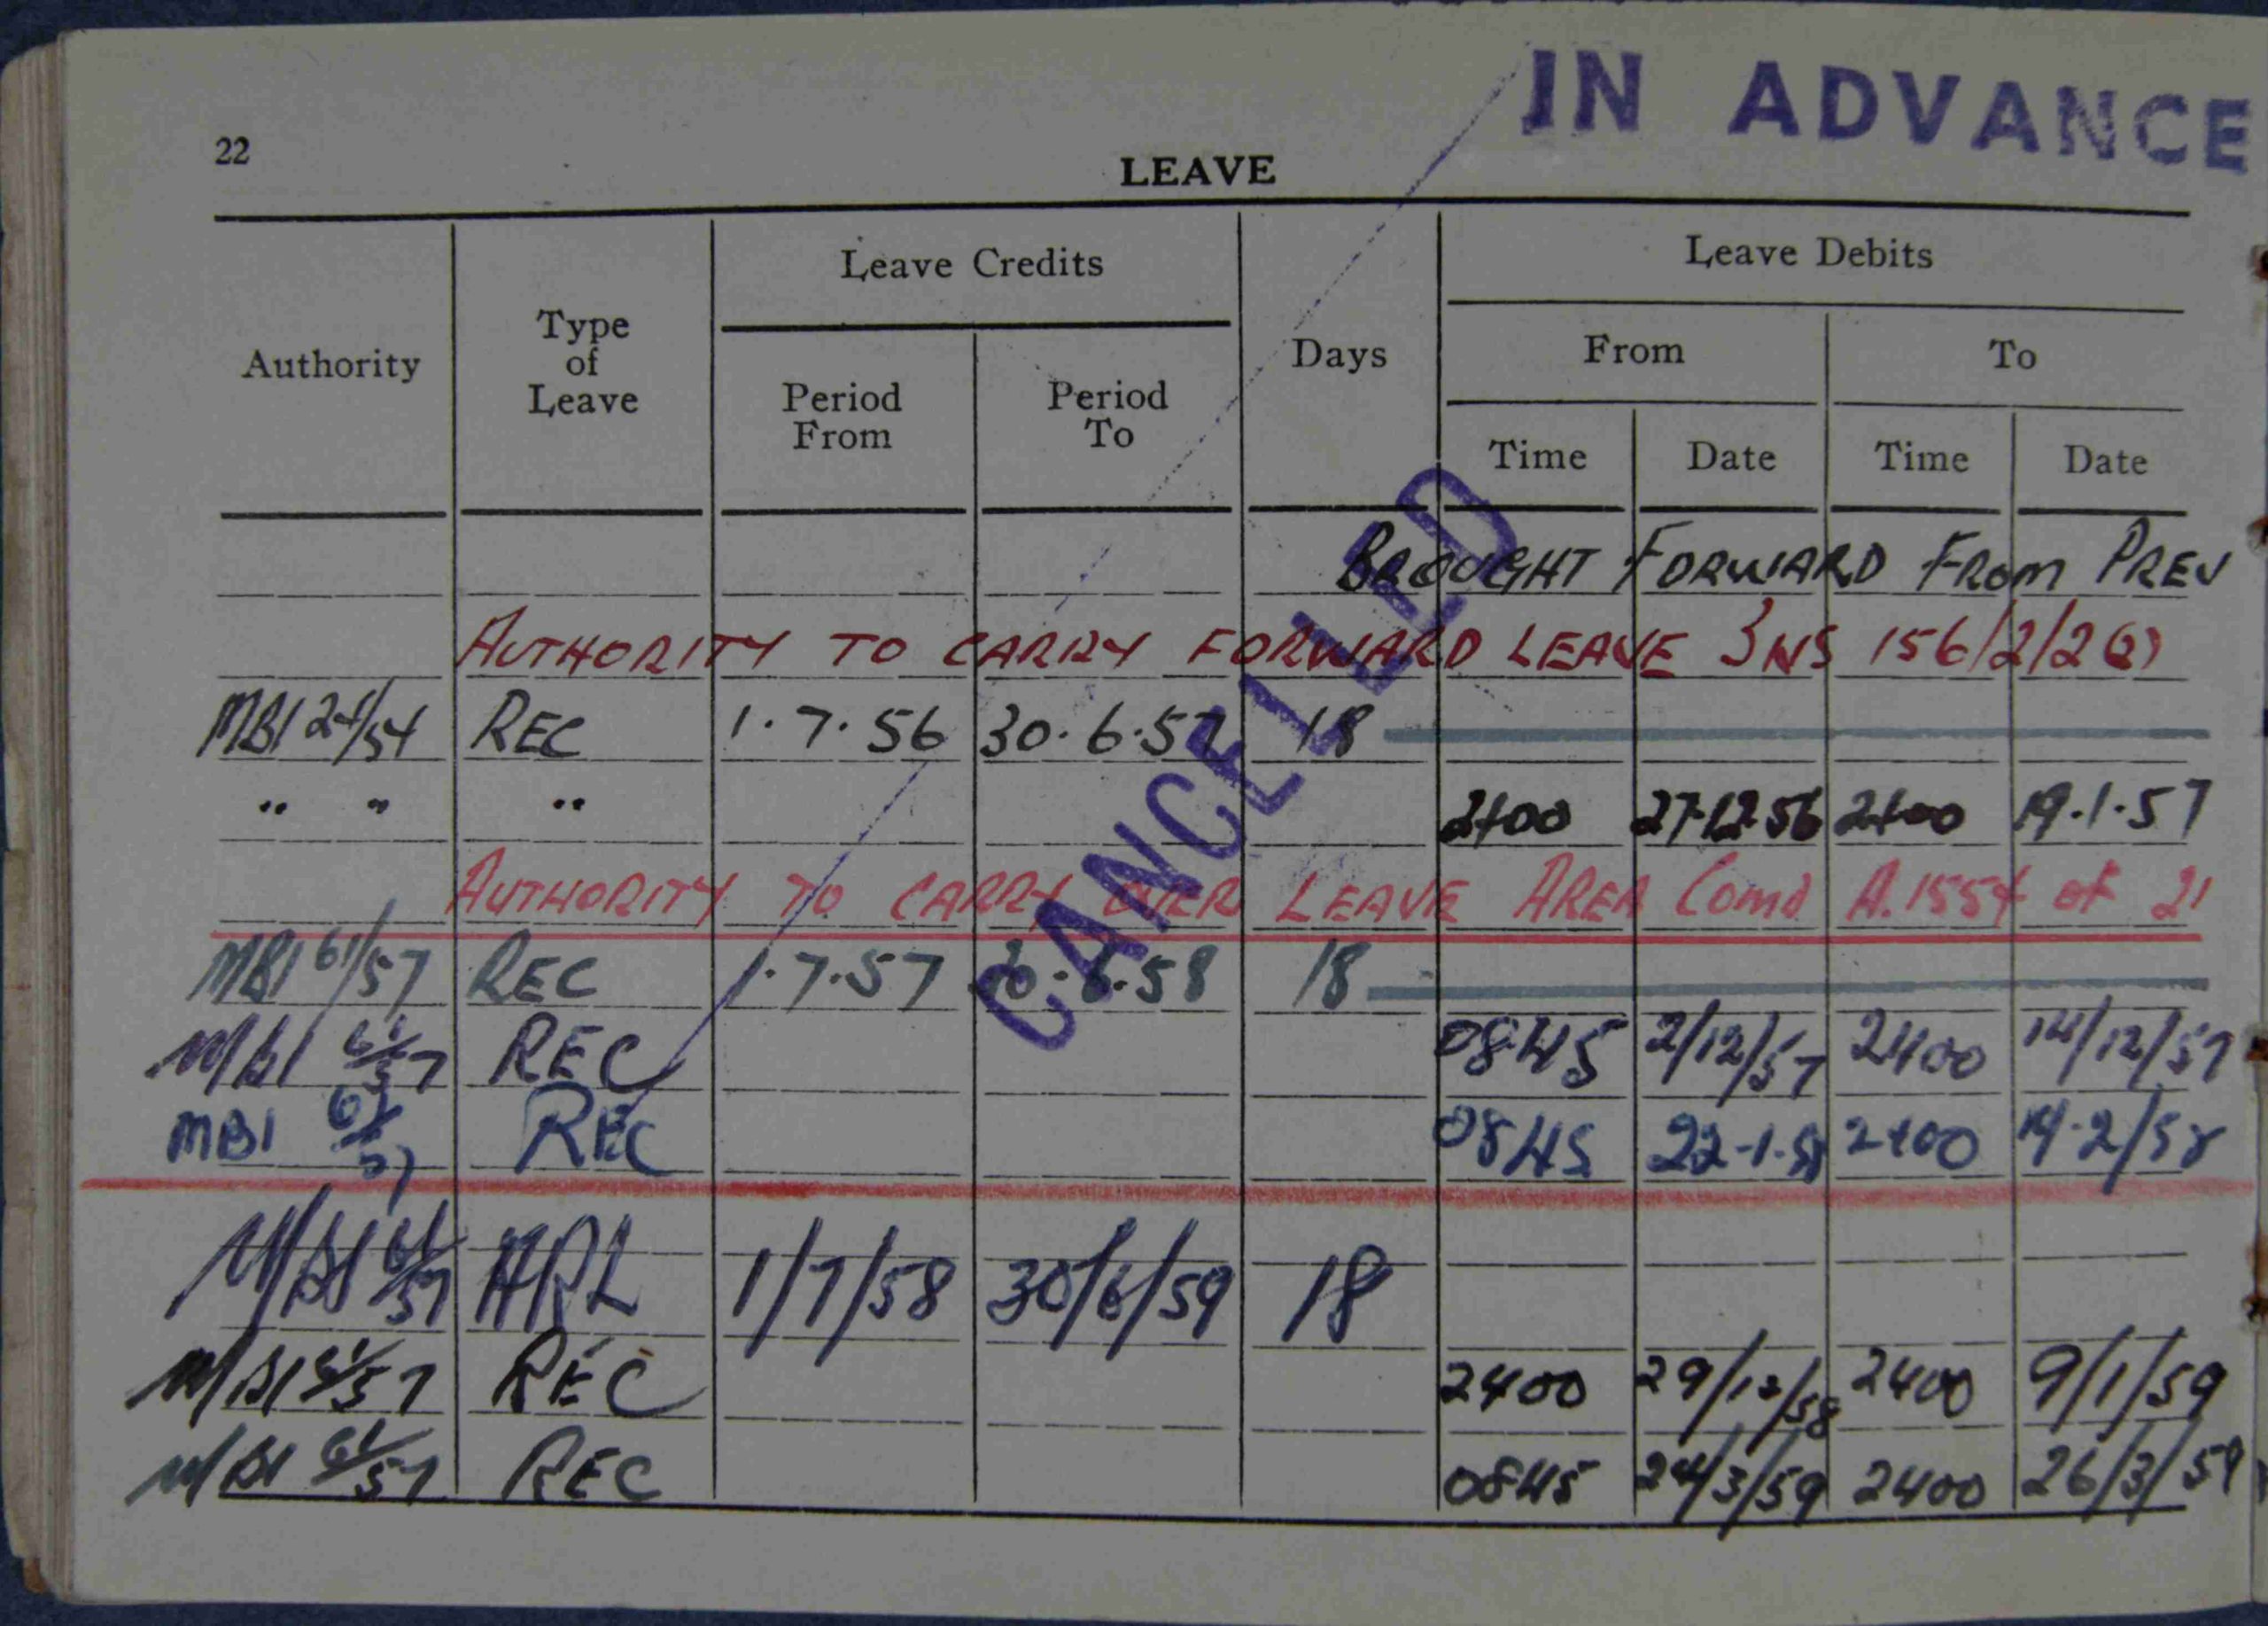 IN ADVANCE
22
LEAVE
Authority Type of Leave Leave Credits Days Leave Debits
Period From Period To From To
Time Date Time Date
BROUGHT FORWARD FROM PREV
AUTHORITY TO CARRY FORWARD LEAVE 156/2/2
MBI 24/54 REC 1.7.56 30.6.57 18
" " " 2400 27.12.56 2400 19.1.57
AUTHORITY TO CARRY OVER LEAVE AREA Comd A.1554 of 21
MBI 61/57 REC 1.7.57 30.6.58 18
M/BI 61/57 REC 0845 2/12/57 2400 14/12/57
MBI 61/57 REC 0845 22-1-58 2400 14.2/58
M/BI 61/57 ARL 1/7/58 30/6/59 18
M/BI 61/57 REC 2400 29/12/58 2400 9/1/59
M/BI 61/57 REC 0845 24/3/59 2400 26/3/59
CANCELLED